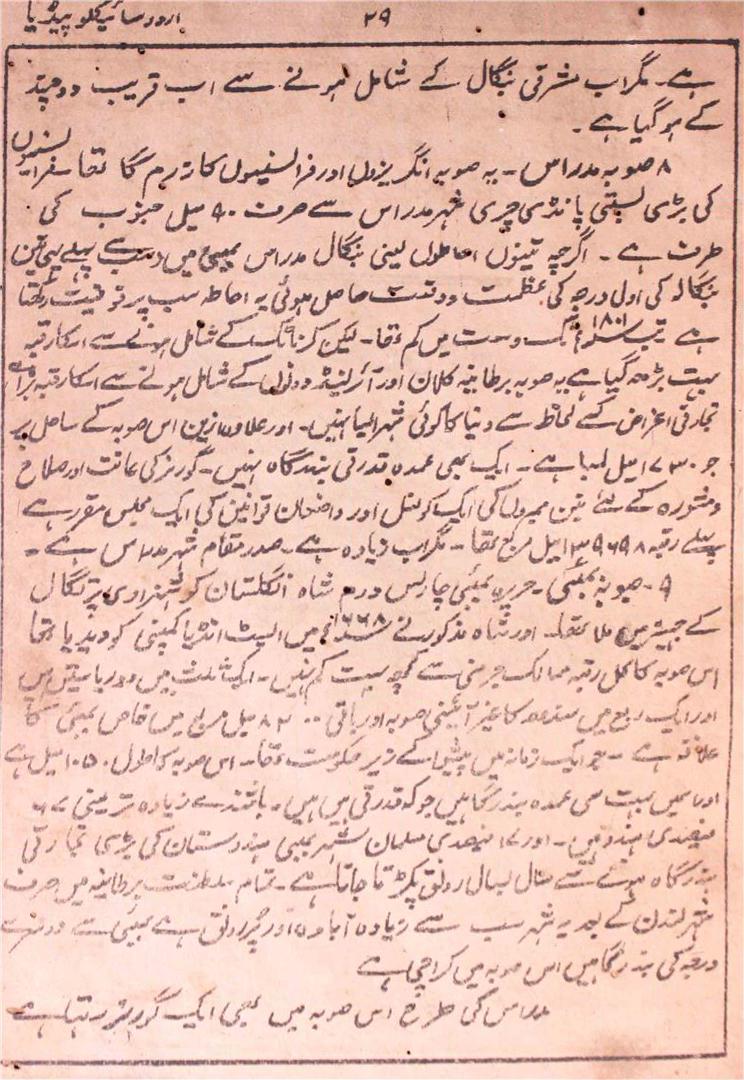 اردو سائیکلو پیڈیا
۲۹
ہے۔ مگر اب مشرقی بنگال کے شامل ہونے سے اب قریب دو چند
کے ہو گیا ہے۔
۸ صوبہ مدراس۔ یہ صوبہ انگریزوں اور فرانسیسوں کا رزم گا تھا فرانسیسوں
کی بڑی بستی پانڈی چری شہر مدراس سے صرف ۹۰ میل جنوب کی
طرف ہے۔ اگرچہ تینوں احاطوں یعنی بنگال مدراس بمبئی میں سب سے پہلے
بنگالہ کی اول درجہ کی عظمت و وقعت حاصل ہوئی یہ احاطہ سب پر فوقیت رکھتا
ہے سنہ ۱۸۰۱ء تک وسعت میں کم تھا۔ لیکن کرناٹک کے شامل ہونے سے اسکا رقبہ
بہت بڑھ گیا ہے یہ صوبہ برطانیہ کلان اور آئرلینڈ دونوں کے شامل ہونے سے اسکا رقبہ
تجارتی اغراض کے لحاظ سے دنیا کا کوئی شہر ایسا نہیں۔ اور علاوہ ازین اس صوبہ کے ساحل پر
جو ۱۷۳۰ میل لمبا ہے۔ ایک بھی عمدہ قدرتی بندگاہ نہیں۔ گورنر کی عانت اور صلاح
و مشورہ کے لئے تین ممبروں کی ایک کونسل اور واضعان قوانین کی ایک مجلس مقرر ہے
پہلے رقبہ ۱۳۹۶۹۸ میل مربع تھا۔ مگر اب زیادہ ہے۔ صدر مقام شہر مدراس ہے۔
۹۔ صوبہ بمبئی۔ جزیرہ بمبئی چارلس دوم شاہ انگلستان کو شہزادی پرتگال
کے جہیز میں ملا تھا۔ اور شاہ مذکور نے سنہ ۱۶۶۸ء میں ایسٹ انڈیا کمپنی کو دیدیا تھا
اس صوبہ کا کل رقبہ ممالک جرمنی سے کچھ بہت کم نہیں۔ ایک ثلث میں دو ریاستیں ہیں
اور ایک ربع میں سندھ کا غیر آئینی صوبہ اور باقی ۸۲۰۰۰ میل مربع میں خاص بمبئی کا
علاقہ ہے۔ جو ایک زمانہ میں پیشوا کے زیر حکومت تھا۔ اس صوبہ کا طول ۱۰۵۰ میل ہے
اور اسمیں بہت سی عمدہ بندرگاہیں جو کہ قدرتی ہیں ہیں۔ باشندے زیادہ تر یعنی ۷۶
فیصدی ہندو ہیں۔ اور ۱۷ فیصدی مسلمان شہر بمبئی ہندوستان کی بڑی تجارتی
بندرگاہ ہونے سے سال بسال رونق پکڑتا جاتا ہے۔ تمام سلطنت برطانیہ میں صرف
شہر لندن کے بعد یہ شہر سب سے زیادہ آباد اور پر رونق ہے بمبئی سے دوسرے
درجہ کی بندرگاہیں اس صوبہ میں کراچی ہے
مدراس کی طرح اس صوبہ میں بھی ایک گورنر رہتا ہے